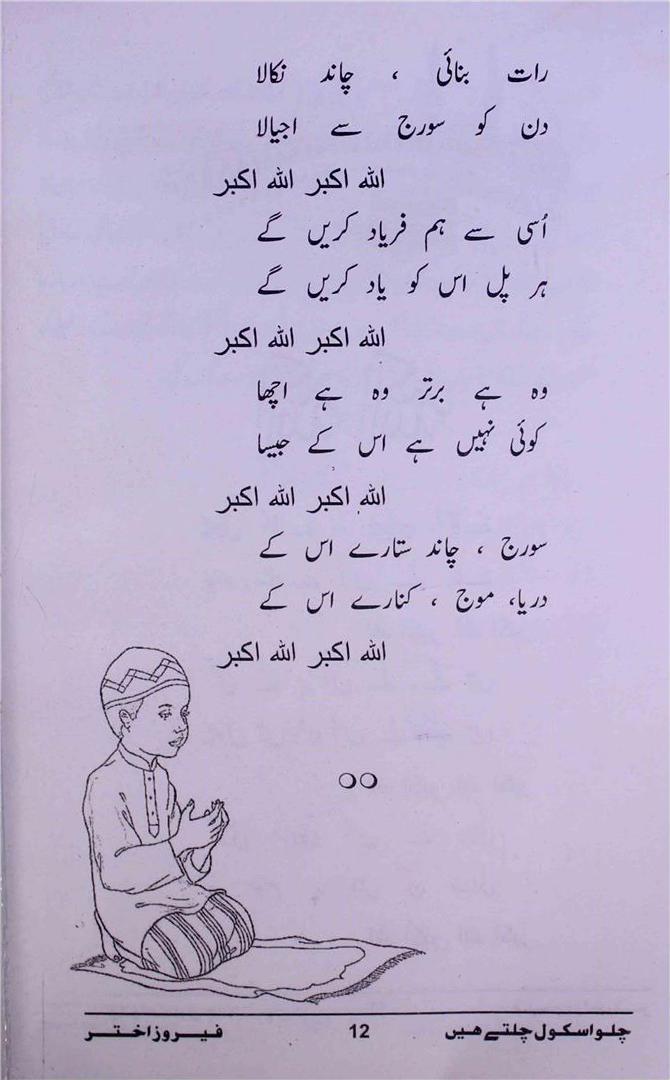 رات بنائی ، چاند نکالا
دن کو سورج سے اجیالا
اللہ اکبر اللہ اکبر
اُسی سے ہم فریاد کریں گے
ہر پل اس کو یاد کریں گے
اللہ اکبر اللہ اکبر
وہ ہے برتر وہ ہے اچھا
کوئی نہیں ہے اس کے جیسا
اللہ اکبر اللہ اکبر
سورج ، چاند ستارے اس کے
دریا، موج ، کنارے اس کے
اللہ اکبر اللہ اکبر
چلو اسکول چلتے ہیں 12 فیروز اختر